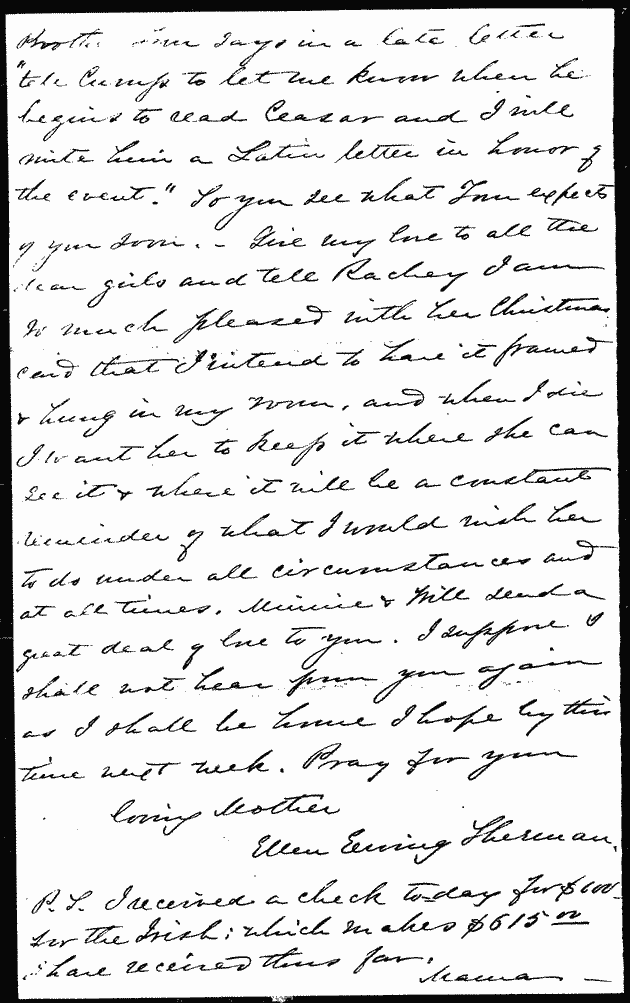 Booth. Tom says in a late letter
"tell Cump to let me know when he
begins to read Ceasar and I will
write him a Latin letter in honor of
the event." So you see what Tom expects
of you soon. - Give my love to all the
dear girls and tell Rachey I am
so much pleased with her Christmas
card that I intend to have it framed
& hung in my room, and when I die
I want her to keep it where she can
see it & where it will be a constant
reminder of what I would wish her
to do under all circumstances and
at all times. Minnie & Will send a
great deal of love to you. I suppose I
shall not hear from you again
as I shall be home I hope by this
time next week. Pray for your
loving Mother
Ellen Ewing Sherman.
P.S. I received a check to-day for $100
for the Irish; which makes $615 00
I have received thus far.
Mama -